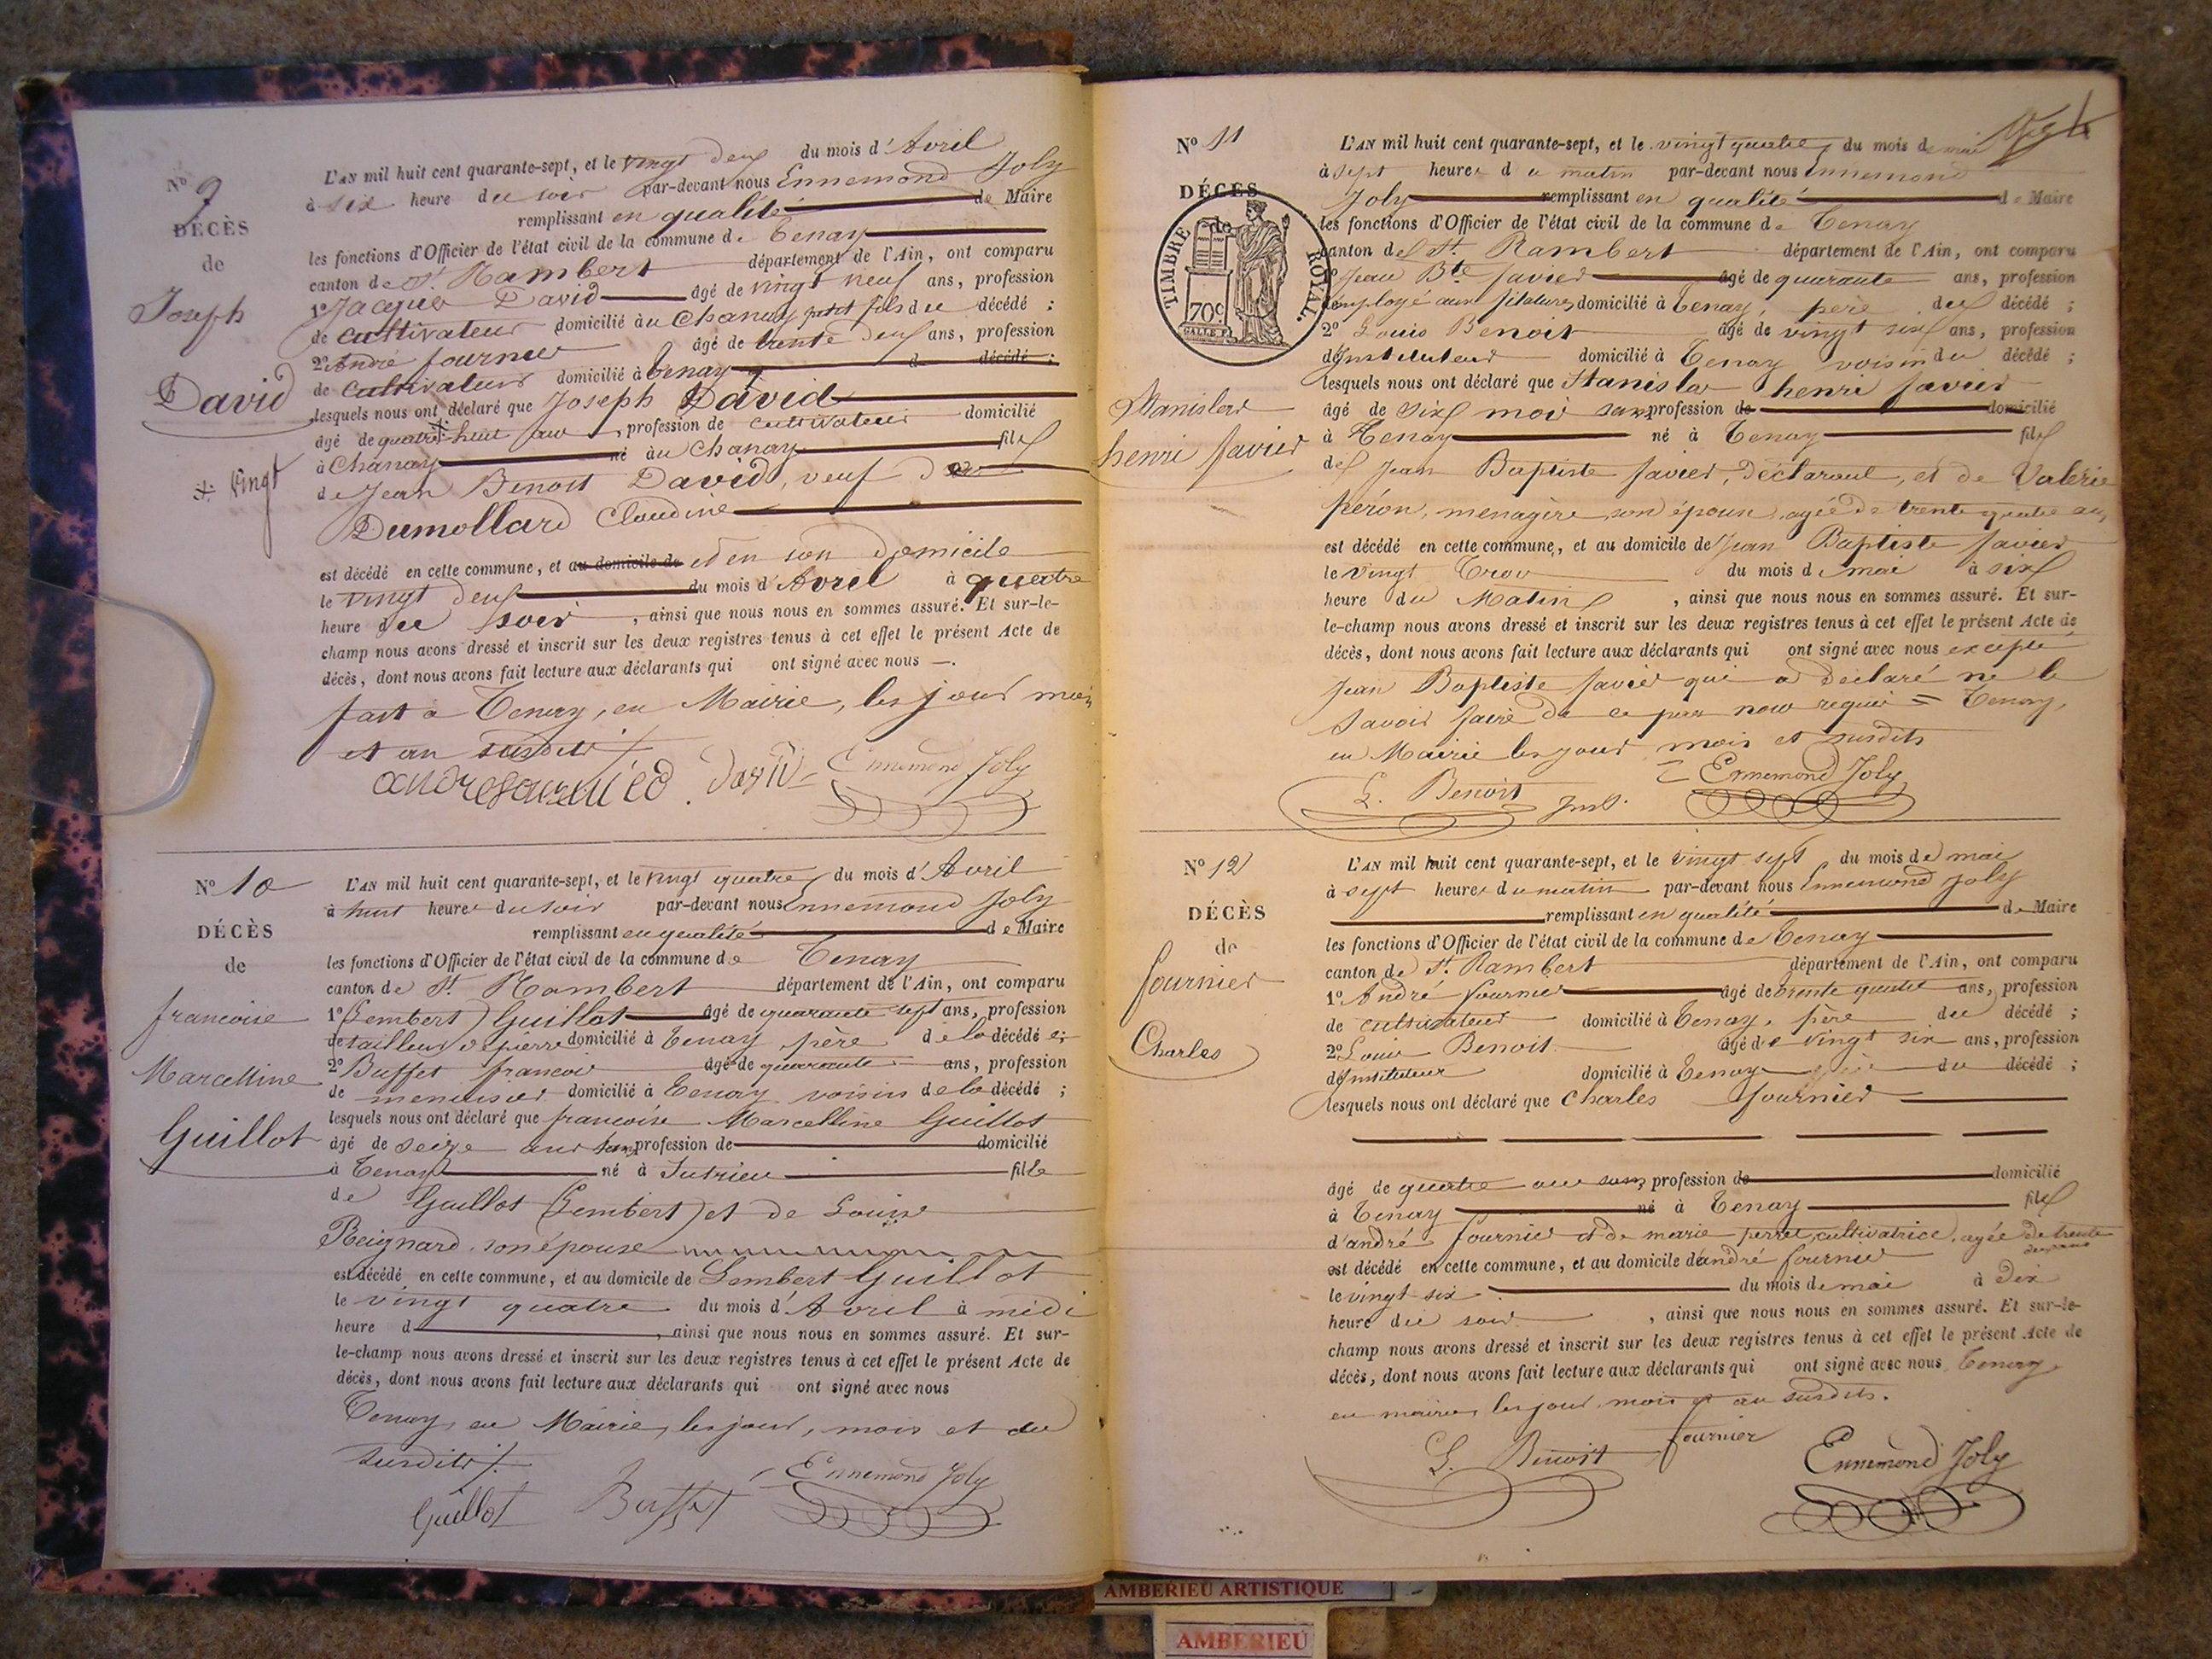 N° 9
DÉCÈS
de
Joseph
David
+ Vingt
L'AN mil huit cent quarante-sept, et le vingt deux du mois d'Avril
à six heure du soir par-devant nous Ennemond Joly
remplissant en qualité de Maire
les fonctions d'Officier de l'état civil de la commune de Tenay
canton de St. Rambert département de l'Ain, ont comparu
1° Jacques David âgé de vingt neuf ans, profession
de cultivateur domicilié au Chanay petit fils du décédé ;
2° André fournier âgé de trente deux ans, profession
de cultivateur domicilié à tenay d décédé ;
lesquels nous ont déclaré que Joseph David
âgé de quatre + huit ans, profession de cultivateur domicilié
à Chanay né au Chanay fils
de Jean Benoit David, veuf de
Dumollard Claudine
est décédé en cette commune, et au domicile de et en son domicile
le vingt deux du mois d'Avril à quatre
heure du soir, ainsi que nous nous en sommes assuré. Et sur-le-
champ nous avons dressé et inscrit sur les deux registres tenus à cet effet le présent Acte de
décès, dont nous avons fait lecture aux déclarants qui ont signé avec nous —.
fait a Tenay, en Mairie, les jour mois
et an susdits
andre fournier David Ennemond Joly
N° 10
DÉCÈS
de
francoise
Marcelline
Guillot
L'AN mil huit cent quarante-sept, et le vingt quatre du mois d'Avril
à huit heures du soir par-devant nous Ennemond Joly
remplissant en qualité de Maire
les fonctions d'Officier de l'état civil de la commune de Tenay
canton de St. Rambert département de l'Ain, ont comparu
1° (Lembert) Guillot âgé de quarante sept ans, profession
de tailleur de pierre domicilié à Tenay père de la décédé e;
2° Buffet francois âgé de quarante ans, profession
de menuisier domicilié à Tenay voisin de la décédé ;
lesquels nous ont déclaré que francoise Marcelline Guillot
âgé de seize ans sans profession de domicilié
à Tenay né à Jutrieu fille
de Guillot (Lembert) et de Louise
Beignard son épouse
est décédé en cette commune, et au domicile de Lembert Guillot
le vingt quatre du mois d'Avril à midi
heure d, ainsi que nous nous en sommes assuré. Et sur-
le-champ nous avons dressé et inscrit sur les deux registres tenus à cet effet le présent Acte de
décès, dont nous avons fait lecture aux déclarants qui ont signé avec nous
Tenay, en Mairie, les jour, mois et an
susdits
Guillot Buffet Ennemond Joly
N° 11
DÉCÈS
de
TIMBRE ROYAL.
70c
Stanislas
henri Favier
L'AN mil huit cent quarante-sept, et le vingt quatre du mois de mai
à sept heures du matin par-devant nous Ennemond
Joly remplissant en qualité de Maire
les fonctions d'Officier de l'état civil de la commune de Tenay
canton de St. Rambert département de l'Ain, ont comparu
1° Jean Bte favier âgé de quarante ans, profession
d'employé aux filatures domicilié à Tenay, père du décédé ;
2° Louis Benoit âgé de vingt six ans, profession
d'Instituteur domicilié à Tenay voisin du décédé ;
lesquels nous ont déclaré que Stanislas henri favier
âgé de six mois sans profession de domicilié
à Tenay né à Tenay fils
de Jean Baptiste favier, déclarant, et de Valérie
péron, menagère son épouse agée de trente quatre ans
est décédé en cette commune, et au domicile de Jean Baptiste favier
le vingt Trois du mois de mai à six
heure du Matin, ainsi que nous nous en sommes assuré. Et sur-
le-champ nous avons dressé et inscrit sur les deux registres tenus à cet effet le présent Acte de
décès, dont nous avons fait lecture aux déclarants qui ont signé avec nous excepté
Jean Baptiste favier qui a déclaré ne le
savoir faire de ce par nous requis = Tenay,
en Mairie les jour mois et susdits
L. Benoit Inst. Ennemond Joly
N° 12
DÉCÈS
de
fournier
Charles
L'AN mil huit cent quarante-sept, et le vingt sept du mois de mai
à sept heures du matin par-devant nous Ennemond Joly
remplissant en qualité de Maire
les fonctions d'Officier de l'état civil de la commune de Tenay
canton de St. Rambert département de l'Ain, ont comparu
1° André fournier âgé de trente quatre ans, profession
de cultivateur domicilié à Tenay, père du décédé ;
2° Louis Benoit âgé de vingt six ans, profession
d'Instituteur domicilié à Tenay du décédé ;
lesquels nous ont déclaré que Charles fournier
âgé de quatre ans sans profession de domicilié
à Tenay né à Tenay fils
d'andré fournier et de marie perret, cultivatrice, agée de trente
deux ans
est décédé en cette commune, et au domicile d'andré fournier
le vingt six du mois de mai à Dix
heure du soir, ainsi que nous nous en sommes assuré. Et sur-le-
champ nous avons dressé et inscrit sur les deux registres tenus à cet effet le présent Acte de
décès, dont nous avons fait lecture aux déclarants qui ont signé avec nous Tenay,
en mairie, les jour mois et an susdits.
L. Benoit fournier Ennemond Joly
AMBERIEU ARTISTIQUE
AMBERIEU